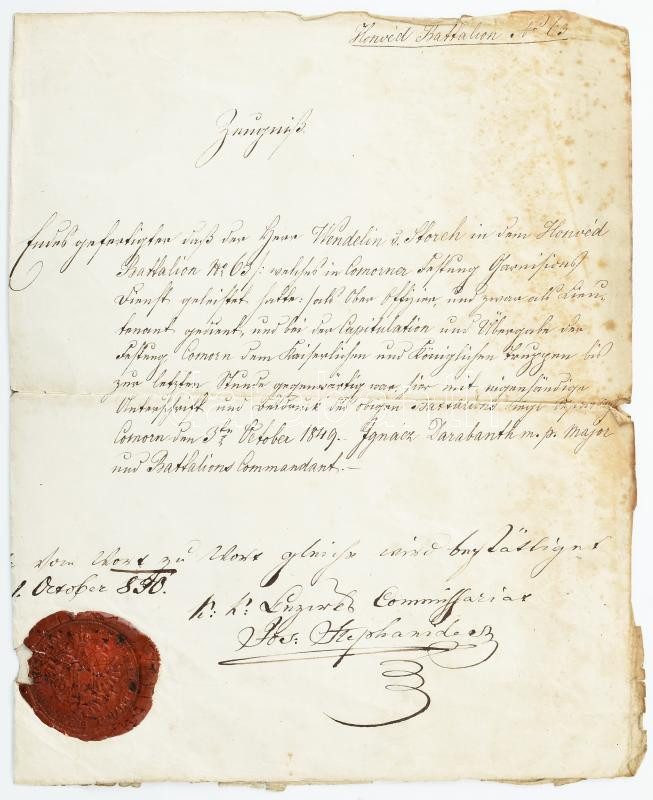 Honvéd Battalion No 63
Zeugniß.
Endesgefertigter daß der Herr Wendelin v. Storch in dem Honvéd
Battalion No 63 /: welches in Comorner Festung Garnisions
Dienst geleistet hatte :/ als Ober Offizier, und zwar als Lieu-
tenant gedient, und bei der Capitulation und Übergabe der
Festung Comorn dem Kaiserlichen und Königlichen Truppen bis
zur letzten Stunde gegenwärtig war, hier mit eigenhändige
Unterschrift und beidruck des obigen Battalions
Comorn den 3ten October 1849. Ignácz Darabanth m. p. Major
und Battalions Commandant.
vom Wort zu Wort gleiche wird bestättiget
October 850.
K: K: Bezirks Commissariat
Jos. Stephanides